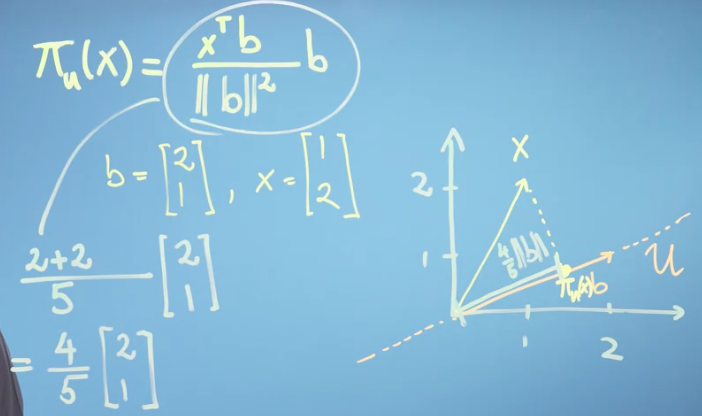 π_u(x) = xᵀb / ‖b‖² b
b = [2 1], x = [1 2]
2+2 / 5 [2 1]
= 4/5 [2 1]
x
2
1
4/5 ‖b‖
π_u(x) b
U
1
2